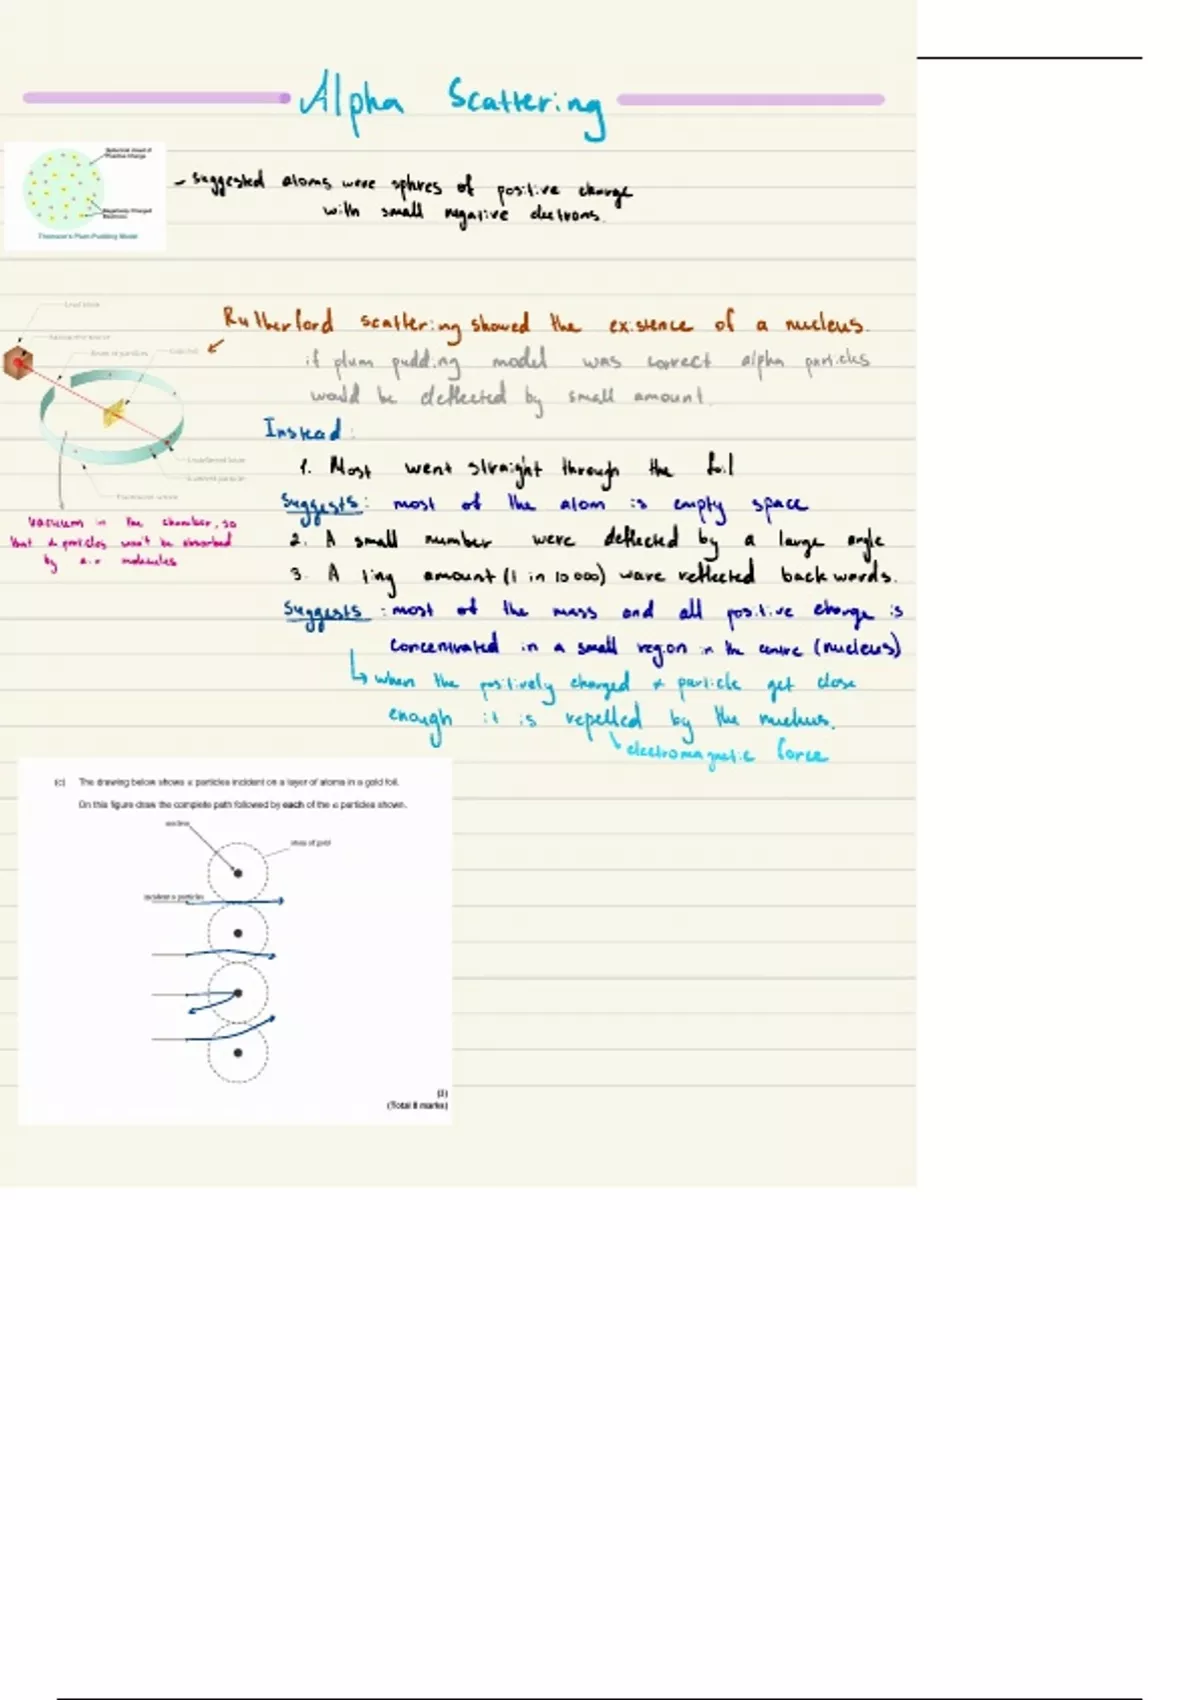 Alpha Scattering
Spherical cloud of
Positive Charge
Negatively Charged
Electrons
Thomson's Plum Pudding Model
- suggested atoms were sphres of positive charge
with small negative electrons.
Rutherford scattering showed the existence of a nucleus.
if plum pudding model was correct alpha particles
would be deflected by small amount.
Instead:
1. Most went straight through the foil
Suggests: most of the atom is empty space
2. A small number were deflected by a large angle
3. A tiny amount (1 in 10 000) were reflected backwords.
Suggests: most of the mass and all positive charge is
concentrated in a small region in the centre (nucleus)
↳ when the positively charged α particle get close
enough it is repelled by the nucleus.
electromagnetic force
Lead block
Beam of particles
Gold foil
Vacuum in the chamber, so
that α particles won't be absorbed
by air molecules
(c) The drawing below shows α particles incident on a layer of atoms in a gold foil.
On this figure draw the complete path followed by each of the α particles shown.
nucleus
atom of gold
incident α particles
(Total 8 marks)